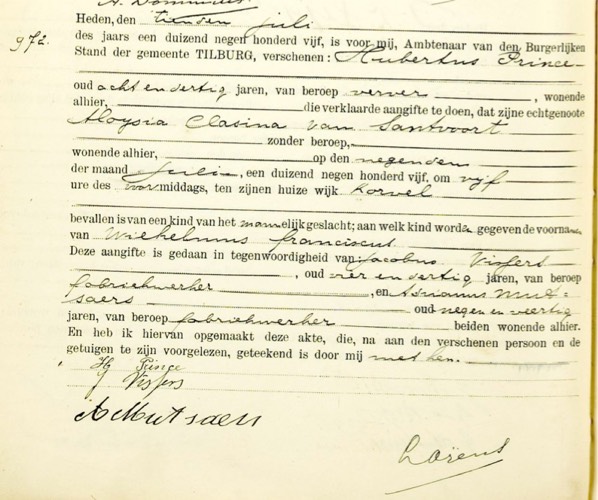 Heden, den tienden juli
972. des jaars een duizend negen honderd vijf, is voor mij, Ambtenaar van den Burgerlijken
Stand der gemeente TILBURG, verschenen: Hubertus Prince
oud acht en dertig jaren, van beroep verver, wonende
alhier, die verklaarde aangifte te doen, dat zijne echtgenoote
Aloysia Clasina van Santvoort
zonder beroep,
wonende alhier, op den negenden
der maand Juli, een duizend negen honderd vijf, om vijf
ure des voormiddags, ten zijnen huize wijk Korvel
bevallen is van een kind van het mannelijk geslacht; aan welk kind worden gegeven de voorname
van Wilhelmus Franciscus
Deze aangifte is gedaan in tegenwoordigheid van: Jacobus Vissers
, oud vier en dertig jaren, van beroep
fabriekwerker, en Adrianus Mut-
saers oud negen en veertig
jaren, van beroep fabriekwerker beiden wonende alhier.
En heb ik hiervan opgemaakt deze akte, die, na aan den verschenen persoon en de
getuigen te zijn voorgelezen, geteekend is door mij met hen.
H Prince
J Vissers
A Mutsaers